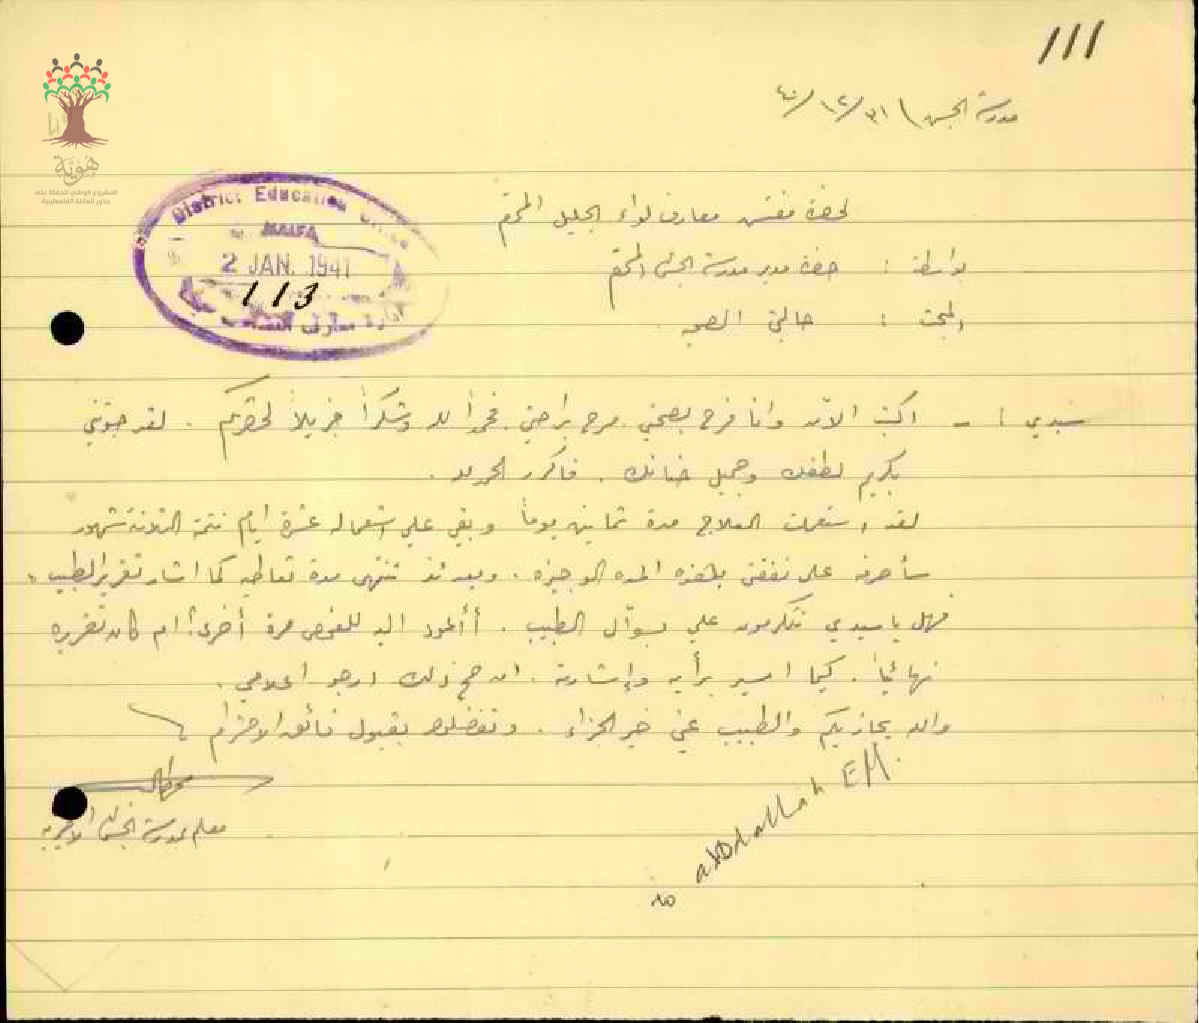 111
مدرسة الجش ٣١/١٢/٤٠
هوية
المشروع الوطني للحفاظ على
جذور العائلة الفلسطينية
District Education Office
HAIFA
2 JAN. 1941
113
ادارة معارف
لحضرة مفتش معارف لواء الجليل المحترم
بواسطة : حضرة مدير مدرسة الجش المحترم
المبحث : حالتي الصحيه
سيدي : - اكتب الآن وانا فرح بصحتي مرح براحتي. فحمداً لله وشكراً جزيلاً لحضرتكم . لقد
بكريم لطفك وجميل حنانك . فأكرر الحمد لله .
لقد استعملت العلاج مدة ثمانين يوماً وبقي علي استعماله عشرة ايام تتمة الثلاثة شهور
سأصرفه على نفقتي بهذه المده الوجيزه . وبعدئذ تنتهي مدة تعاطيه كما اشار تقرير الطبيب .
فهل يا سيدي تتكرمون علي بسؤال الطبيب . أأعود اليه للفحص مرة أخرى؟ ام كان تقريره
نهائياً . كيما اسير برأيه وإشارته . ان صح ذلك ارجو اعلامي .
والله يجازيكم والطبيب عني خير الجزاء . وتفضلوا بقبول فائق الاحترام
معلم بمدرسة الجش الاميرية
Abdallah EM.